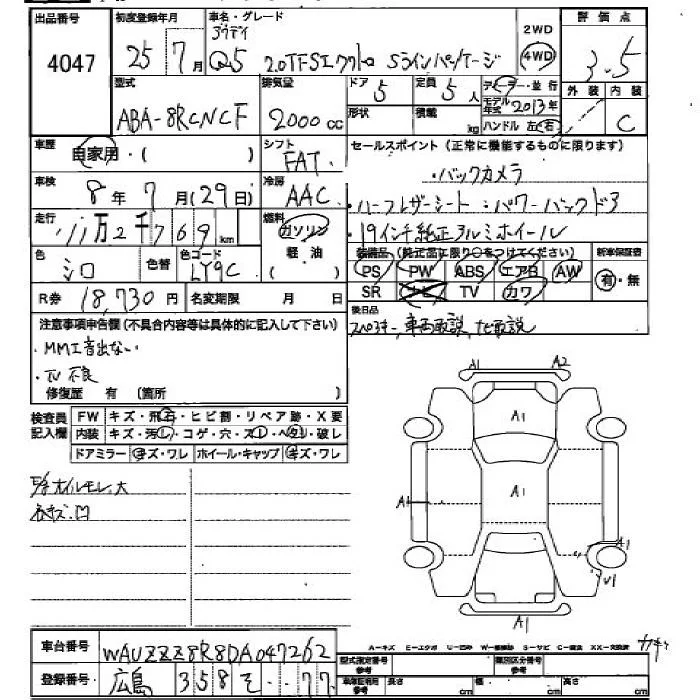 出品番号 初度登録年月 車名・グレード 2WD 評価点
4047 25年7月 アウディ Q5 2.0TFSIクワトロ Sラインパッケージ 4WD 3.5
型式 排気量 ドア 定員 ディーラー・並行 外装 内装
ABA-8RCNCF 2000cc 5 5人 モデル年式 2013年 C
形状 積載 kg ハンドル 左・右
車歴 自家用・( ) シフト FAT セールスポイント (正常に機能するものに限ります)
・バックカメラ
車検 8年7月(29日) 冷房 AAC ・ハーフレザーシート・パワーバックドア
走行 11万2千769km 燃料 ガソリン 軽油 ( ) ・19インチ純正アルミホイール
色 シロ 色替 色コード LY9C 装備品 (純正品に限り○をつけてください) 新車保証書
PS PW ABS エアB AW 有・無
SR TV カワ
R券 18,730円 名変期限 月 日
後日品
スペアキー, 車両取説, ナビ取説
注意事項申告欄 (不具合内容等は具体的に記入して下さい)
・MMI音出ない
・TV不良
修復歴 有 〔箇所 〕
検査員記入欄 FW キズ・飛石・ヒビ割・リペア跡・X要
内装 キズ・汚レ・コゲ・穴・スレ・ヘタリ・破レ
ドアミラー キズ・ワレ ホイール・キャップ キズ・ワレ
オイルモレ大
A1 A2
A1
A1 A1
A1
U1
A1
A-キズ E-エクボ U-凹み S-サビ C-腐食 XX-交換済
車台番号 WAUZZZ8R8DA047262
登録番号 広島 358 そ ・・77
型式指定番号 類別区分番号
車庫証明用参考 長さ cm 幅 cm 高さ cm